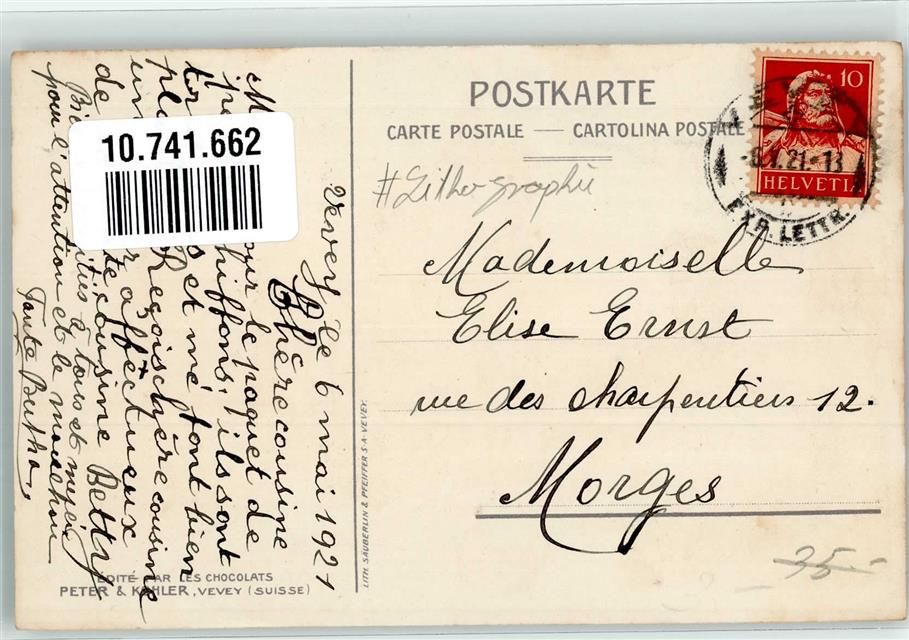 POSTKARTE
CARTE POSTALE — CARTOLINA POSTALE
#Lithographie
10
HELVETI
-6.V.21.-13
EXP. LETTR.
10.741.662
Mademoiselle
Elise Ernst
rue des charpentiers 12.
Morges
35.-
Vevey le 6 mai 1921
Chère cousine
M pour le paquet de
chiffons; ils sont
et mé font bien
Reçois chère cousine
un affectueux
de ta cousine Betty
Bien à tous et merci
pour l'attention et le mouchoir
Tante Bertha.
LITH. SÄUBERLIN & PFEIFFER S.A. VEVEY.
EDITÉ PAR LES CHOCOLATS
PETER & KOHLER, VEVEY (SUISSE)